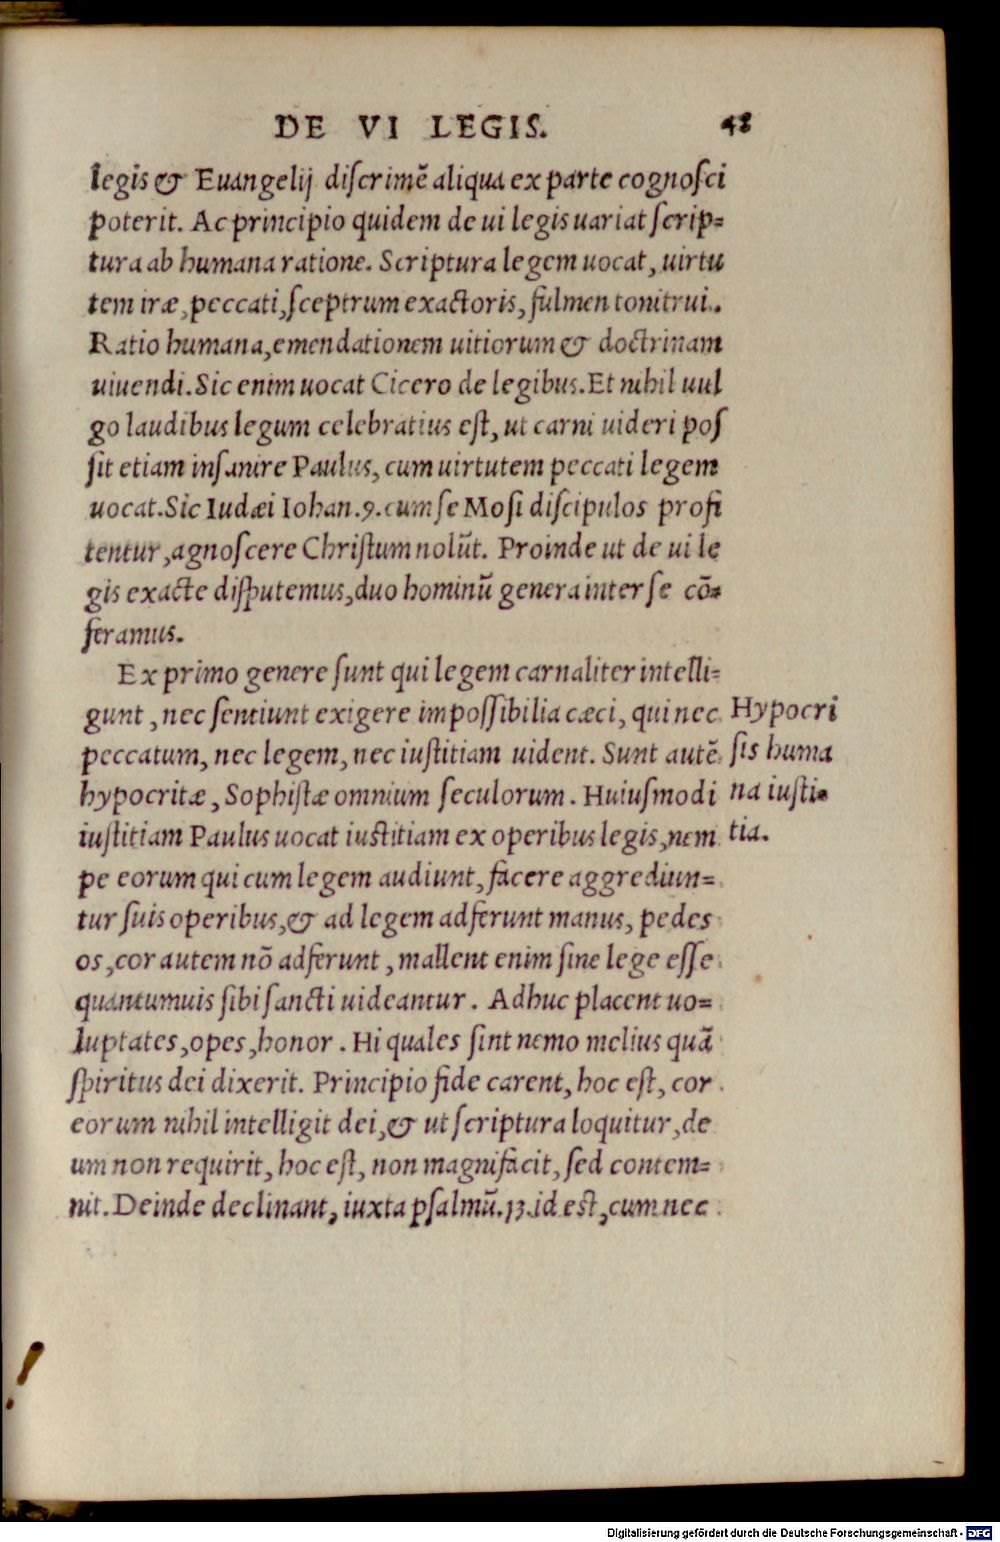 DE VI LEGIS. 48
legis & Euangelij diſcrimẽ aliqua ex parte cognoſci
poterit. Ac principio quidem de ui legis uariat ſcrip=
tura ab humana ratione. Scriptura legem uocat, uirtu
tem iræ, peccati, ſceptrum exactoris, fulmen tonitrui.
Ratio humana, emendationem uitiorum & doctrinam
uiuendi. Sic enim uocat Cicero de legibus. Et nihil uul
go laudibus legum celebratius eſt, ut carni uideri poſ
ſit etiam inſanire Paulus, cum uirtutem peccati legem
uocat. Sic Iudæi Iohan. 9. cum ſe Moſi diſcipulos profi
tentur, agnoſcere Chriſtum nolũt. Proinde ut de ui le
gis exacte diſputemus, duo hominũ genera inter ſe cõ=
feramus.
Ex primo genere ſunt qui legem carnaliter intelli=
gunt, nec ſentiunt exigere impoſſibilia cæci, qui nec
peccatum, nec legem, nec iuſtitiam uident. Sunt autẽ
hypocritæ, Sophiſtæ omnium ſeculorum. Huiuſmodi
iuſtitiam Paulus uocat iuſtitiam ex operibus legis, nem
pe eorum qui cum legem audiunt, facere aggrediun=
tur ſuis operibus, & ad legem adferunt manus, pedes
os, cor autem nõ adferunt, mallent enim ſine lege eſſe
quantumuis ſibi ſancti uideantur. Adhuc placent uo=
luptates, opes, honor. Hi quales ſint nemo melius quã
ſpiritus dei dixerit. Principio fide carent, hoc eſt, cor
eorum nihil intelligit dei, & ut ſcriptura loquitur, de
um non requirit, hoc eſt, non magnifacit, ſed contem=
nit. Deinde declinant, iuxta pſalmũ. 13. id eſt, cum nec
Hypocri
ſis huma
na iuſti=
tia.
Digitalisierung gefördert durch die Deutsche Forschungsgemeinschaft - DFG